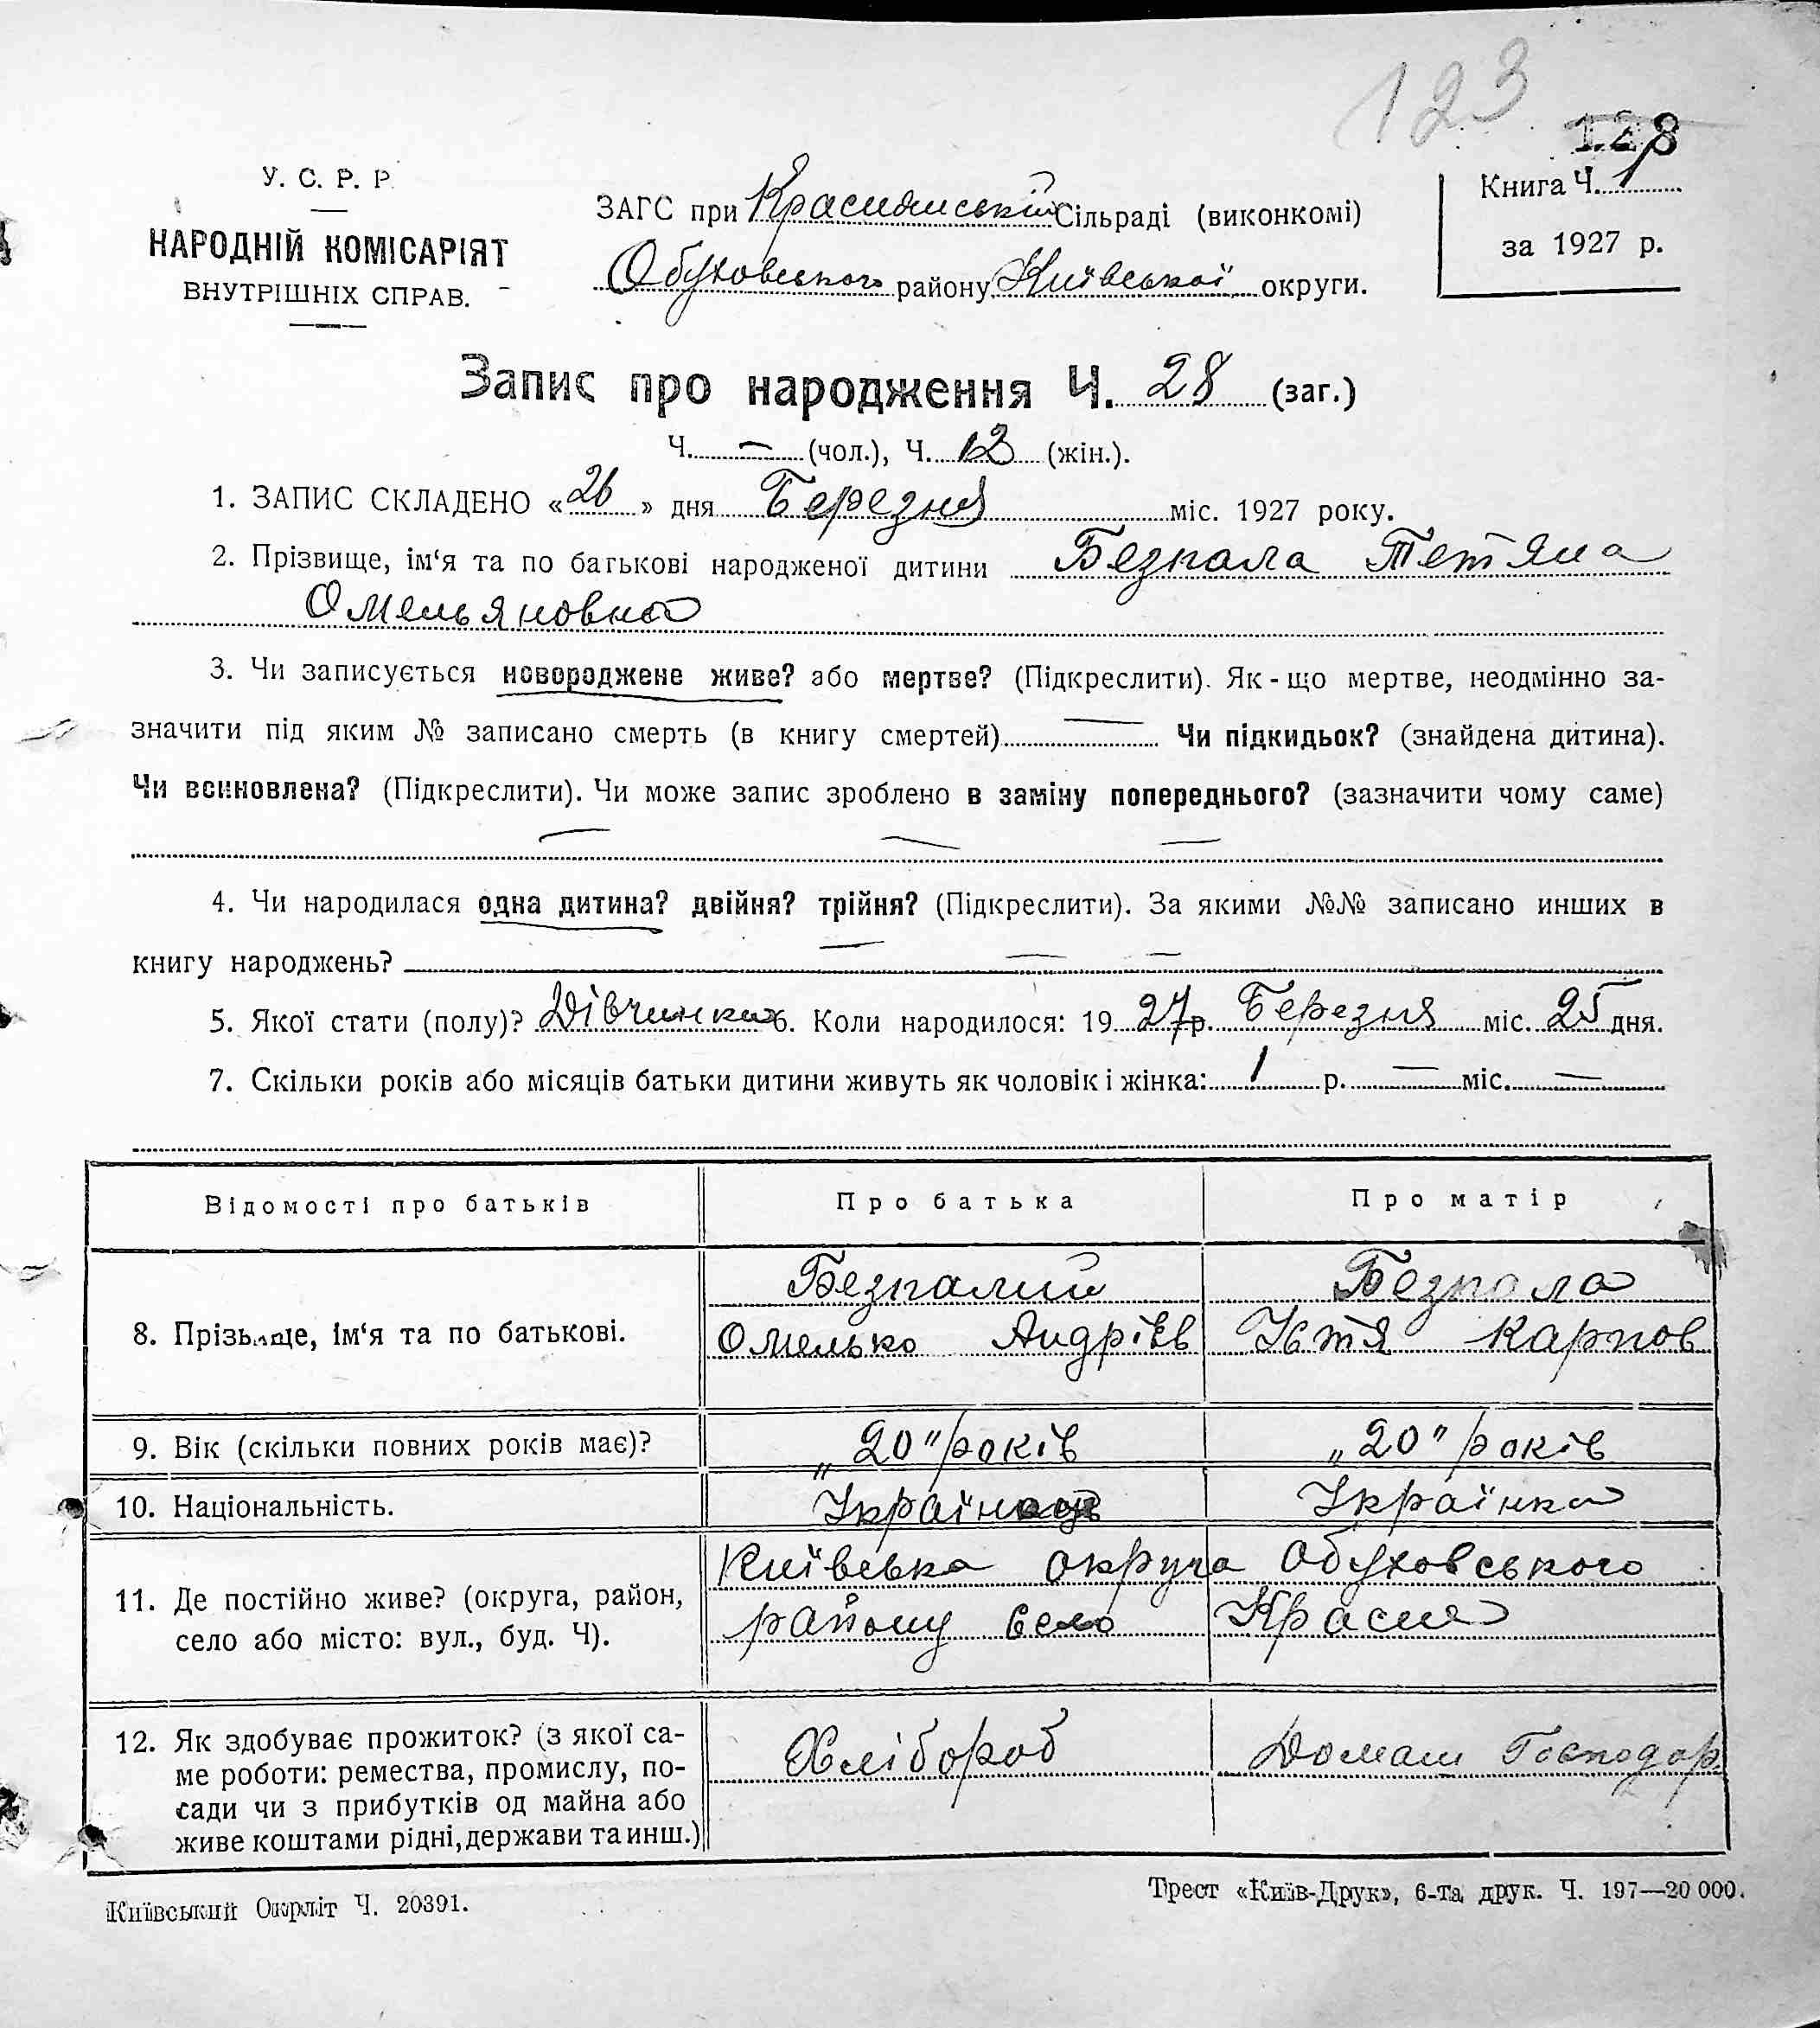 123
128
У. С. Р. Р.
НАРОДНІЙ КОМІСАРІЯТ
ВНУТРІШНІХ СПРАВ.
ЗАГС при Краснянській Сільраді (виконкомі)
Обуховського району Київської округи.
Книга Ч. 1
за 1927 р.
Запис про народження Ч. 28 (заг.)
Ч. — (чол.), Ч. 12 (жін.).
1. ЗАПИС СКЛАДЕНО «26» дня Березня міс. 1927 року.
2. Прізвище, ім‘я та по батькові народженої дитини Безпала Тетяна
Омельяновна
3. Чи записується новороджене живе? або мертве? (Підкреслити). Як-що мертве, неодмінно за-
значити під яким № записано смерть (в книгу смертей) — Чи підкидьок? (знайдена дитина).
Чи всиновлена? (Підкреслити). Чи може запис зроблено в заміну попереднього? (зазначити чому саме)
— — —
4. Чи народилася одна дитина? двійня? трійня? (Підкреслити). За якими №№ записано инших в
книгу народжень? — — —
5. Якої стати (полу)? Дівчинка 6. Коли народилося: 1927 р. Березня міс. 25 дня.
7. Скільки років або місяців батьки дитини живуть як чоловік і жінка: 1 р. — міс. —
Відомості про батьків Про батька Про матір
8. Прізвище, ім‘я та по батькові. Безпалий Безпала
Омелько Андріїв Устя Карпов
9. Вік (скільки повних років має)? „20" років „20" років
10. Національність. Українець Українка
11. Де постійно живе? (округа, район,
село або місто: вул., буд. Ч). Київська округа Обуховського
району село Красне
12. Як здобуває прожиток? (з якої са-
ме роботи: ремества, промислу, по-
сади чи з прибутків од майна або
живе коштами рідні, держави та инш.) Хлібороб Домаш Господар.
Київський Окрліт Ч. 20391.
Трест «Київ-Друк», 6-та друк. Ч. 197—20 000.